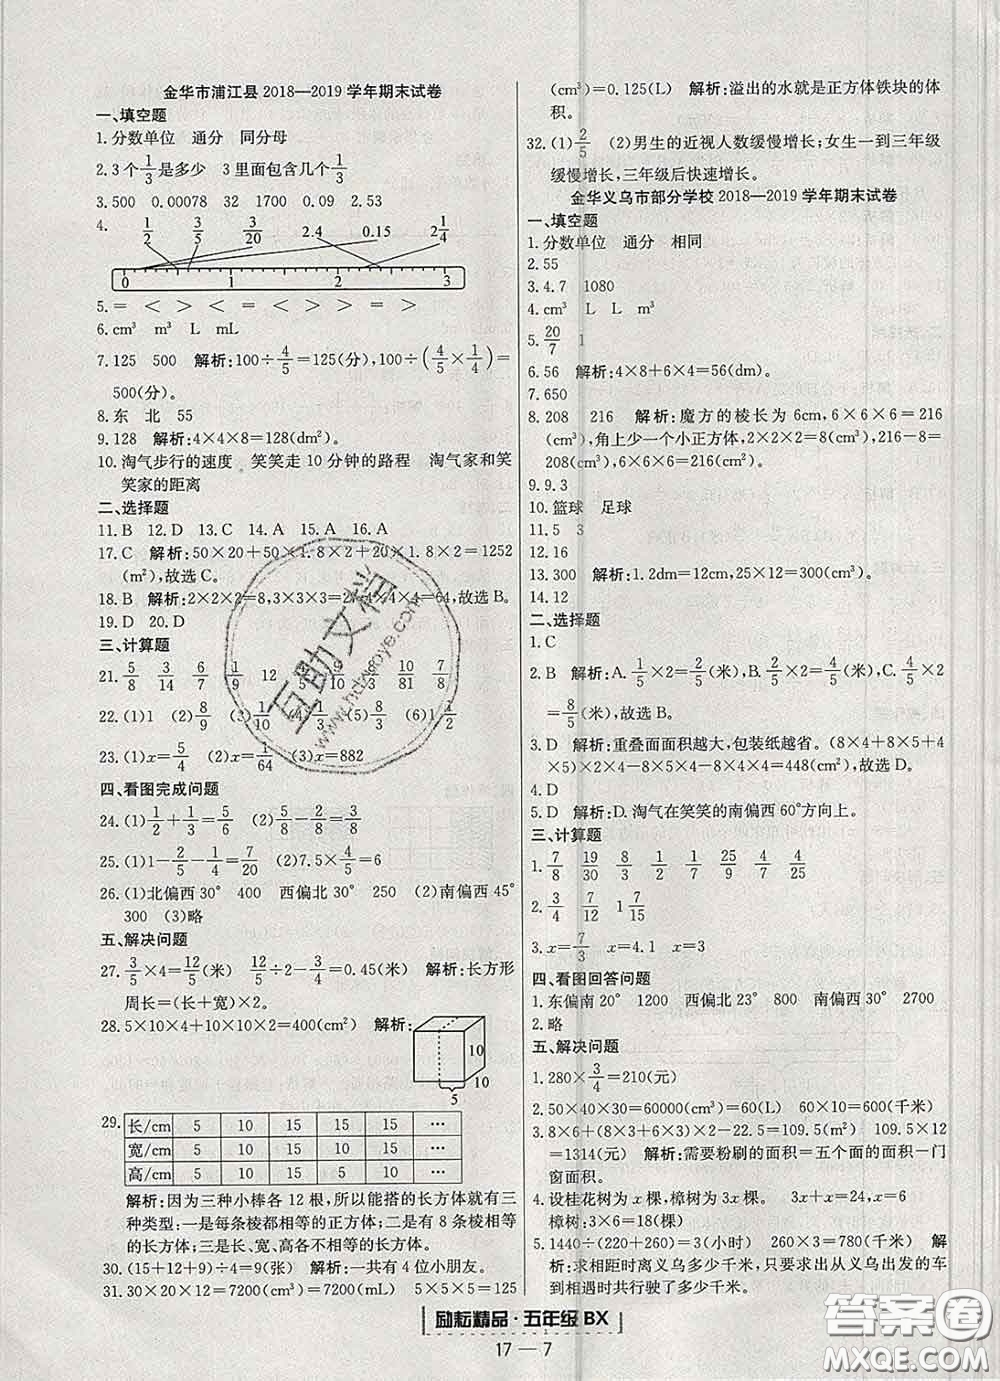 金华市浦江县2018—2019学年期末试卷
一、填空题
1.分数单位 通分 同分母
2.3个1/3是多少 3里面包含几个1/3
3.500 0.00078 32 1700 0.09 2.53
4. 1/2 3/5 3/20 2.4 0.15 2 1/4
0 1 2 3
5.= < > < = > < >
6.cm³ m³ L mL
7.125 500 解析:100÷4/5=125(分),100÷(4/5×1/4)=
500(分)。
8.东 北 55
9.128 解析:4×4×8=128(dm²)。
10.淘气步行的速度 笑笑走10分钟的路程 淘气家和笑
笑家的距离
二、选择题
11.B 12.D 13.C 14.A 15.A 16.A
17.C 解析:50×20+50×1.8×2+20×1.8×2=1252
(m²),故选C。
18.B 解析:2×2×2=8,3×3×3=27,4×4×4=64,故选B。
19.D 20.D
三、计算题
21. 5/8 3/14 6/7 1/9 12 8/10 10/81 7/8
22.(1)1 (2)8/9 (3)1/10 (4)1/3 (5)8/3 (6)1 1/2
23.(1)x=5/4 (2)x=1/64 (3)x=882
四、看图完成问题
24.(1)1/2+1/3=5/6 (2)5/6-1/2=1/3
25.(1)1-2/5-1/4=7/20 (2)7.5×4/5=6
26.(1)北偏西30° 400 西偏北30° 250 (2)南偏西45°
300 (3)略
五、解决问题
27.3/5×4=12/5(米) 12/5÷2-3/4=0.45(米) 解析:长方形
周长=(长+宽)×2。
28.5×10×4+10×10×2=400(cm²) 解析:
10
10
5
29. 长/cm 5 10 15 15 15 …
宽/cm 5 10 15 5 10 …
高/cm 5 10 15 5 5 …
解析:因为三种小棒各12根,所以能搭的长方体就有三
种类型:一是每条棱都相等的正方体;二是有8条棱相等
的长方体;三是长、宽、高各不相等的长方体。
30.(15+12+9)÷4=9(张) 解析:一共有4位小朋友。
31.30×20×12=7200(cm³)=7200(mL) 5×5×5=125
(cm³)=0.125(L) 解析:溢出的水就是正方体铁块的体
积。
32.(1)2/5 (2)男生的近视人数缓慢增长;女生一到三年级
缓慢增长,三年级后快速增长。
金华义乌市部分学校2018—2019学年期末试卷
一、填空题
1.分数单位 通分 相同
2.55
3.4.7 1080
4.cm³ L L m³
5.20/7 1
6.56 解析:4×8+6×4=56(dm)。
7.650
8.208 216 解析:魔方的棱长为6cm,6×6×6=216
(cm³),角上少一个小正方体,2×2×2=8(cm³),216-8=
208(cm³),6×6×6=216(cm²)。
9.9.3
10.篮球 足球
11.5 3
12.16
13.300 解析:1.2dm=12cm,25×12=300(cm³)。
14.12
二、选择题
1.C
2.B 解析:A.1/5×2=2/5(米);B.1/5×2=2/5(米);C.4/5×2=
8/5(米),故选B。
3.D 解析:重叠面面积越大,包装纸越省。(8×4+8×5+4
×5)×2×4-8×5×4-8×4×4=448(cm²),故选D。
4.D
5.D 解析:D.淘气在笑笑的南偏西60°方向上。
三、计算题
1.7/8 19/30 8/3 1/2 4/15 2/9 5/8 4/15
2.3/4 7/12 1 7/15
3.x=7/3 x=4.1 x=3
四、看图回答问题
1.东偏南20° 1200 西偏北23° 800 南偏西30° 2700
2.略
五、解决问题
1.280×3/4=210(元)
2.50×40×30=60000(cm³)=60(L) 60×10=600(千米)
3.8×6+(8×3+6×3)×2-22.5=109.5(m²) 109.5×12
=1314(元) 解析:需要粉刷的面积=五个面的面积-门
窗面积。
4.设桂花树为x棵,樟树为3x棵。 3x+x=24,x=6
樟树:3×6=18(棵)
5.1440÷(220+260)=3(小时) 260×3=780(千米) 解
析:求相距时离义乌多少千米,只要求出从义乌发出的车
到相遇时共行驶了多少千米。
励耘精品·五年级 BX
17—7
互助文档
www.hdzuoye.com
答案圈
MXQE.COM